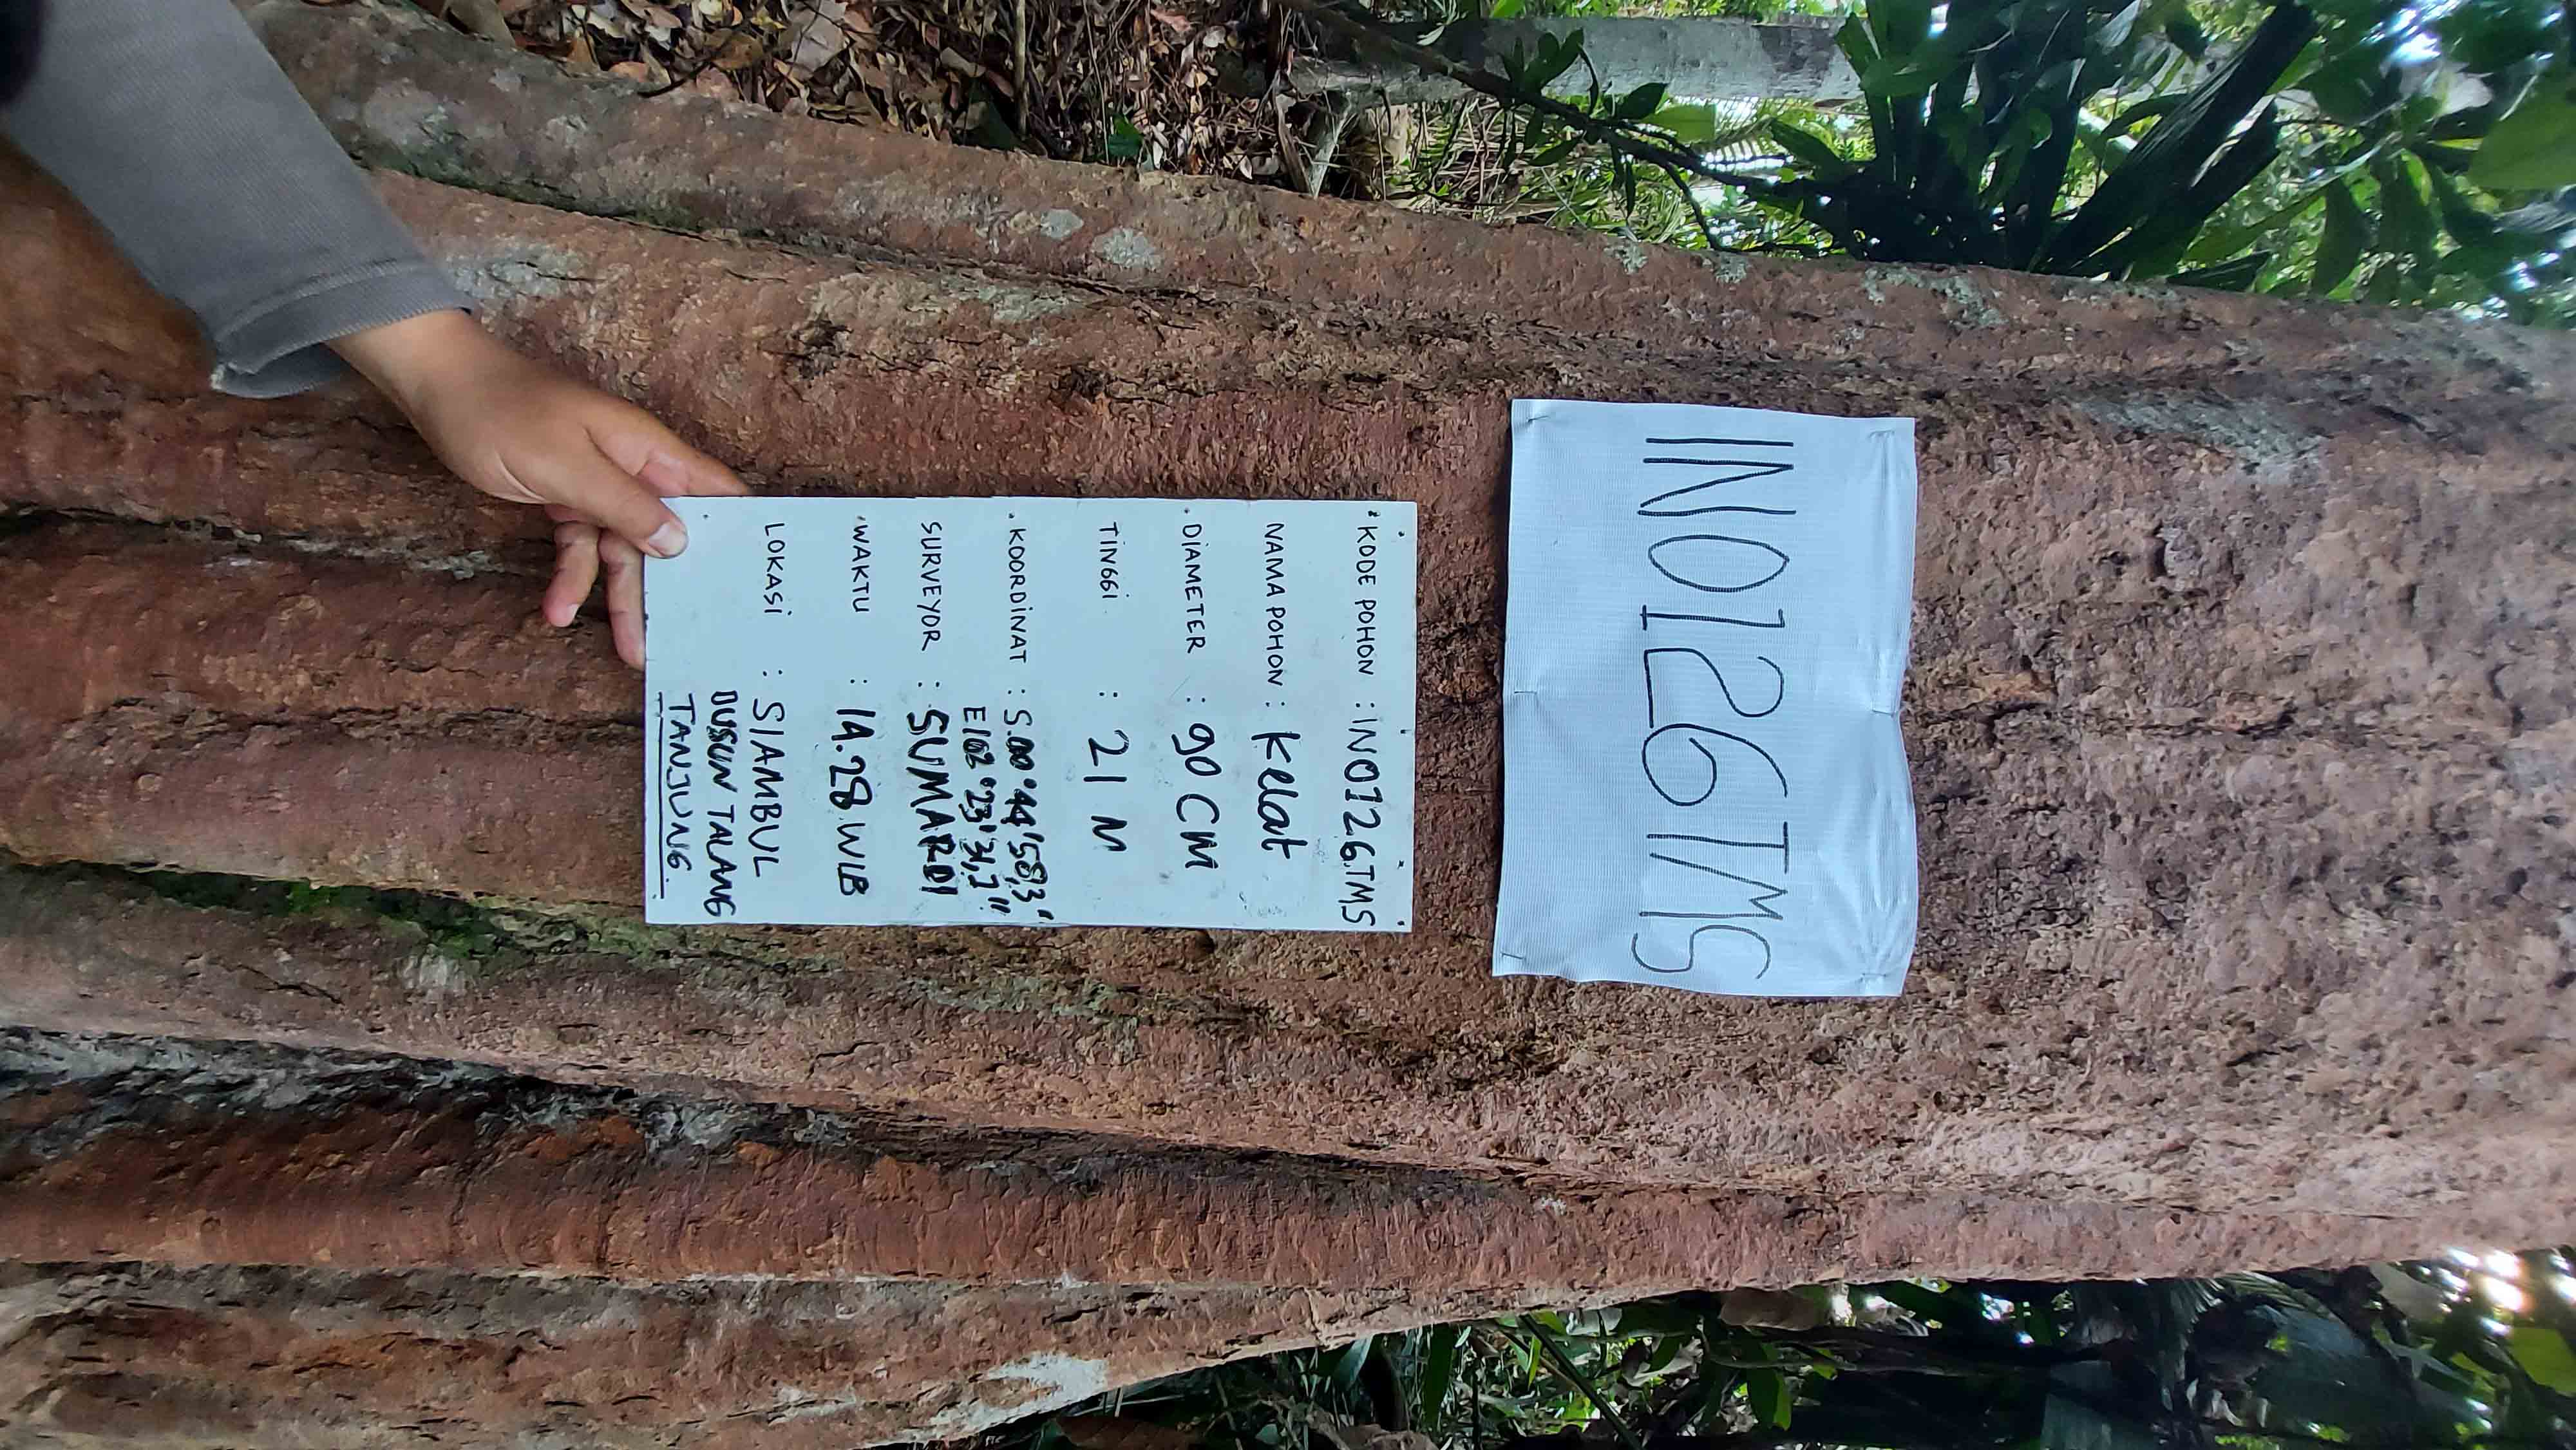 IN0126TMS
KODE POHON : IN0126.TMS
NAMA POHON : Kelat
DIAMETER : 90 CM
TINGGI : 21 M
KOORDINAT : S.00°44'58,3"
E102°23'31,7"
SURVEYOR : SUMARDI
WAKTU : 14.28 WIB
LOKASI : SIAMBUL
DUSUN TALANG
TANJUNG.